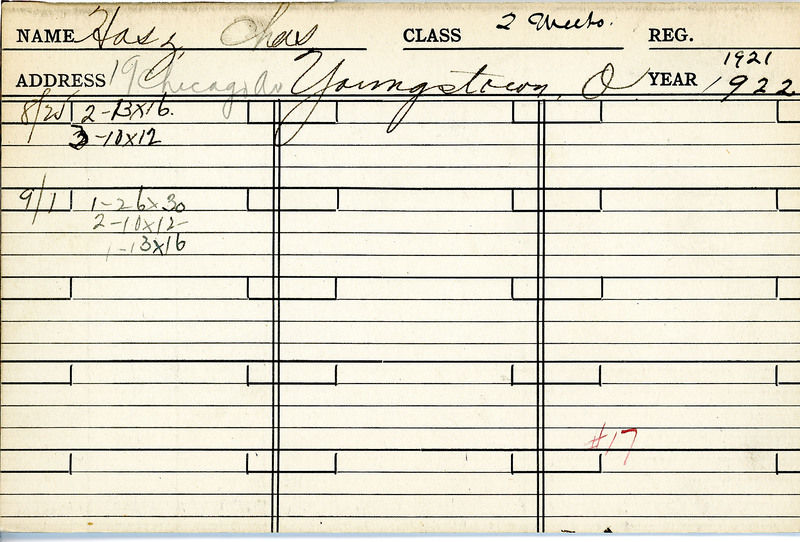 NAME Hasz, Chas CLASS 2 Weeks. REG.
ADDRESS 19 Chicago Av Youngstown, O YEAR 1921 1922
8/25 2-13x16.
3-10x12
9/1 1-26x30
2-10x12
1-13x16
#17